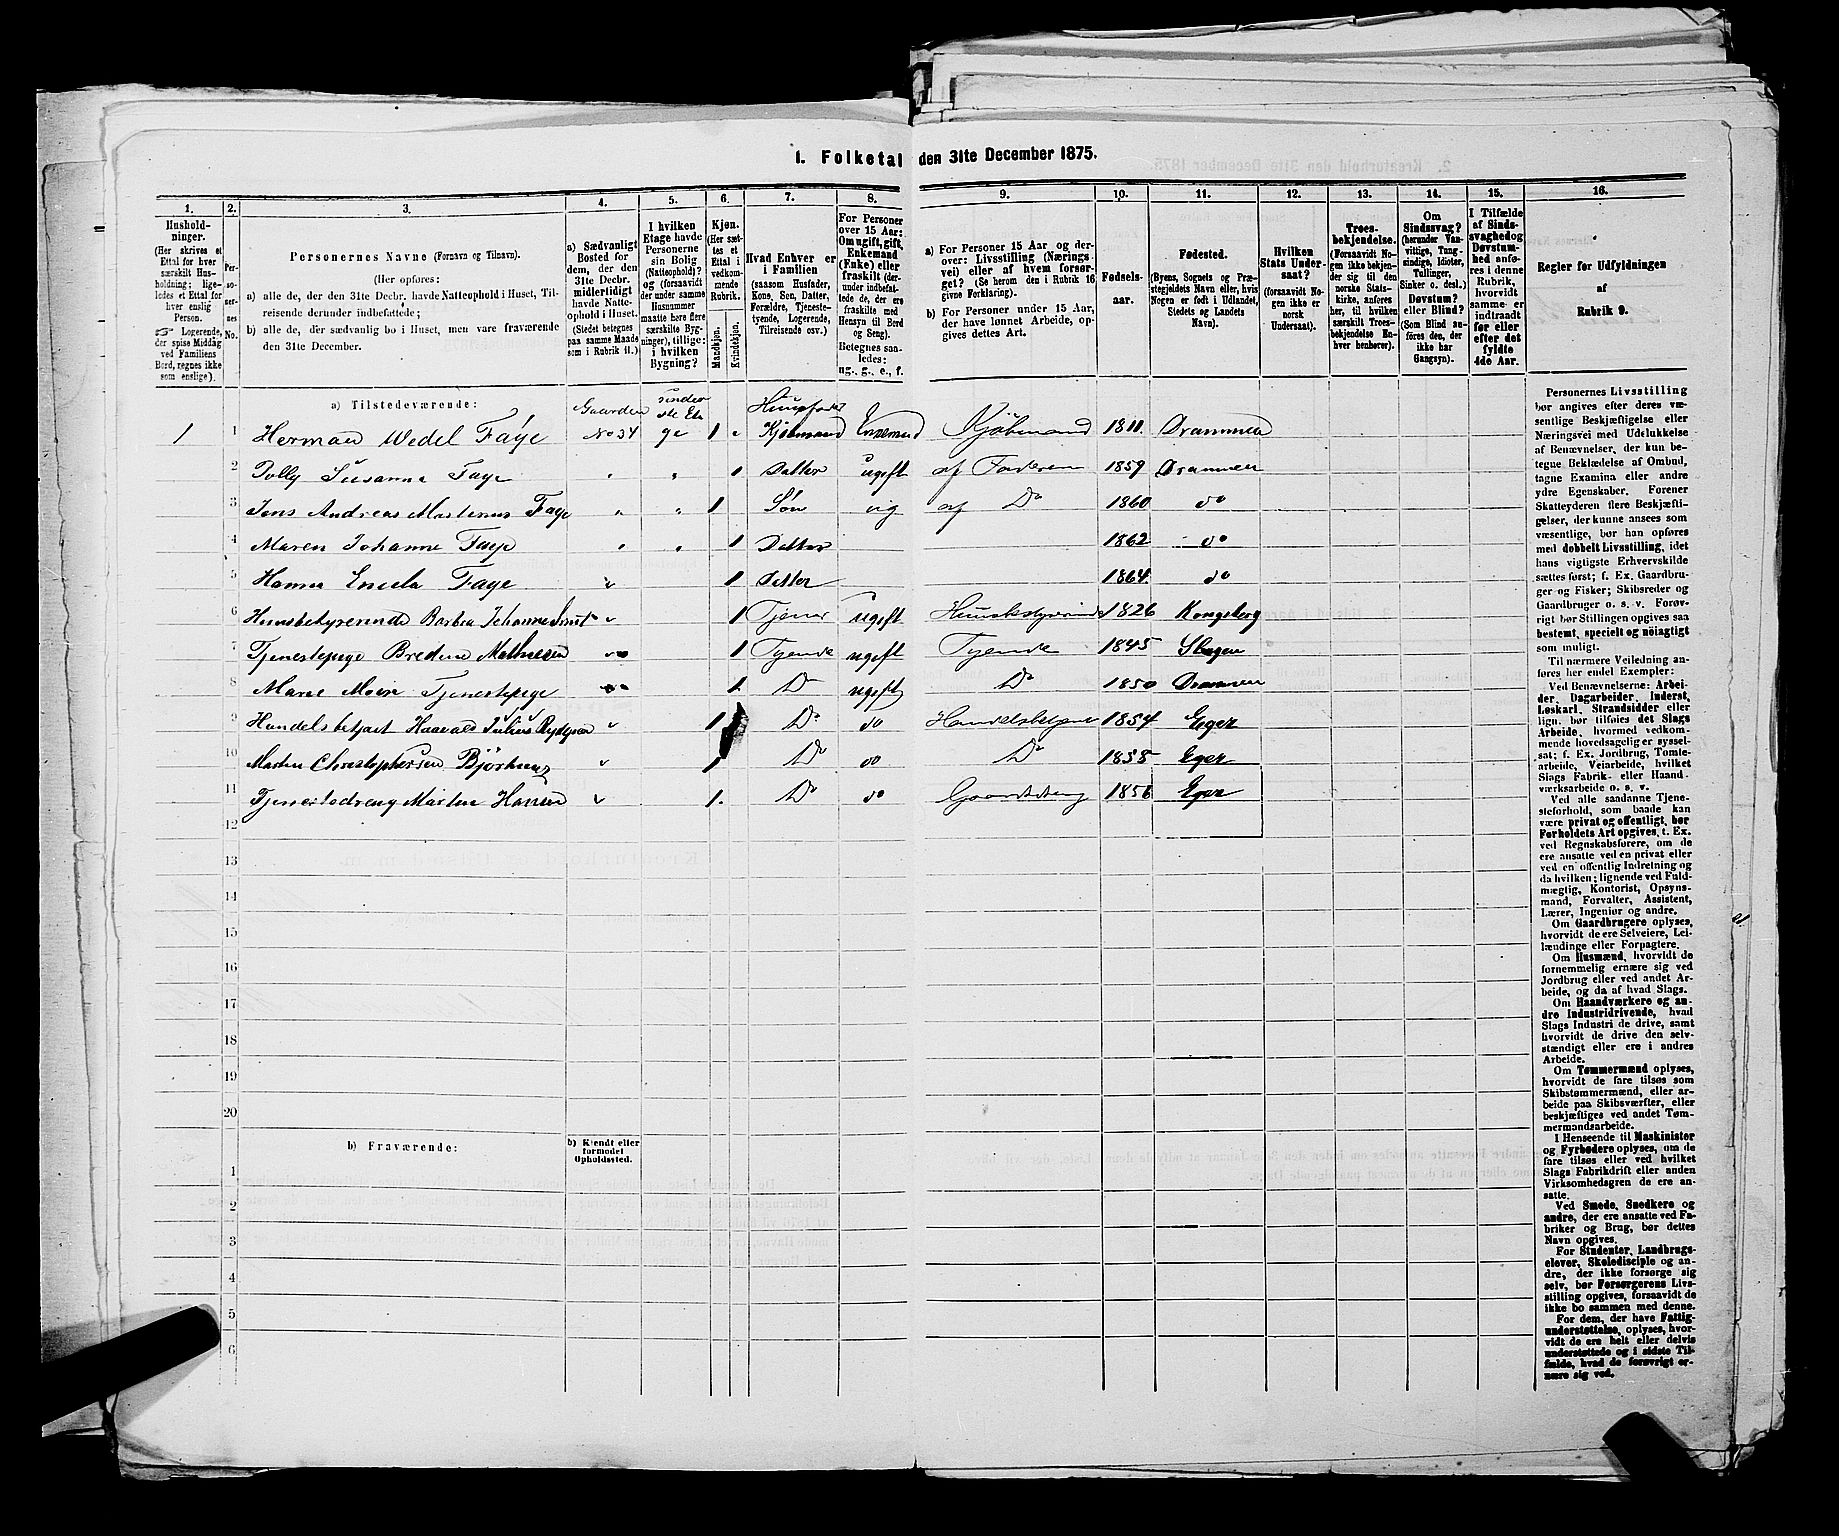 1. Folketal den 31te December 1875.
1. 2. 3. 4. 5. 6. 7. 8. 9. 10. 11. 12. 13. 14. 15. 16.
Hushold-
ninger.
(Her skrives et
Ettal for hver
særskilt Hus-
holdning; lige-
ledes et Ettal for
hver enslig
Person.
☞ Logerende,
der spise Middag
ved Familiens
Bord, regnes ikke
som enslige).
Per-
so-
ner-
nes
No.
Personernes Navne (Fornavn og Tilnavn).
(Her opføres:
a) alle de, der den 31te Decbr. havde Natteophold i Huset, Til-
reisende derunder indbefattede;
b) alle de, der sædvanlig bo i Huset, men vare fraværende
den 31te December.
a) Sædvanligt
Bosted for
dem, der den
31te Decbr.
midlertidigt
havde Natte-
ophold i Huset.
(Stedet betegnes
paa samme Maade
som i Rubrik 11.)
I hvilken
Etage havde
Personerne
sin Bolig
(Natteophold)?
og (forsaavidt
der under samme
Husnummer
maatte høre flere
særskilte Byg-
ninger), tillige:
i hvilken
Bygning?
Kjøn.
(Her sæt-
tes et
Ettal i
vedkom-
mende
Rubrik.
Mandkjøn.
Kvindekjøn.
Hvad Enhver er
i Familien
(saasom Husfader,
Kone, Søn, Datter,
Forældre, Tjeneste-
tyende, Logerende,
Tilreisende osv.)
For Personer
over 15 Aar:
Om ugift, gift,
Enkemand
(Enke) eller
fraskilt (der-
under indbefat-
tede de, der ere
fraskilte med
Hensyn til Bord
og Seng).
Betegnes saa-
ledes:
ug., g., e., f.
a) For Personer 15 Aar og der-
over: Livsstilling (Nærings-
vei) eller af hvem forsør-
get? (Se herom den i Rubrik 16
givne Forklaring).
b) For Personer under 15 Aar,
der have lønnet Arbeide, op-
gives dettes Art.
Fødsels-
aar.
Fødested.
(Byens, Sognets og Præ-
stegjeldets Navn eller, hvis
Nogen er født i Udlandet,
Stedets og Landets
Navn).
Hvilken
Stats Under-
saat?
(forsaavidt No-
gen ikke er
norsk
Undersaat).
Troes-
bekjendelse.
(Forsaavidt No-
gen ikke bekjen-
der sig til den
norske Stats-
kirke, anføres
her, til hvilken
særskilt Troes-
bekjendelse En-
hver henhører).
Om
Sindssvag?
(herunder Van-
vittige, Tung-
sindige, Idioter,
Tullinger,
Sinker o. desl.)
Døvstum?
eller Blind?
(Som Blind an-
føres den, der
ikke har
Gangsyn).
I Tilfælde
af Sinds-
svaghed og
Døvstum-
hed anfø-
res i denne
Rubrik,
hvorvidt
samme er
indtraadt
før eller
efter det
fyldte
4de Aar.
Regler for Udfyldningen
af
Rubrik 9.
a) Tilstedeværende:
1 1 Herman Wedel Faye Gaarden No 34 1 Kjøbmand Enkemand Kjøbmand 1811. Drammen
2 Polly Susanna Faye 1 Datter ugift af Faderen 1859 Drammen
3 Jens Andreas Martinus Faye 1 Søn ug af Do 1860 do
4 Maren Johanne Faye 1 Datter 1862 do
5 Hanna Faye 1 Datter 1864. do
6 Barbra Johanne 1 Tjener ugift 1826 Kongsberg
7 Tjenestepige Bredine 1 Tyende ugift Tyende 1845 Slagen
8 Marie Tjenestepige 1. Do ugift Do 1850 Drammen
9 Handelsbetjent Julius 1 Do do Handelsbetjent 1854 Eger
10 Martin Christophersen 1 Do do Do 1858 Eger
11 Tjenestedreng Martin Hansen 1. Do do 1856 Eger
12
13
14
15
16
17
18
19
20
b) Fraværende:
b) Kjendt eller
formodet
Opholdssted.
1
2
3
4
5
6
Personernes Livsstilling
bør angives efter deres væ-
sentlige Beskjæftigelse eller
Næringsvei med Udelukkelse
af Benævnelser, der kun be-
tegne Beklædelse af Ombud,
tagne Examina eller andre
ydre Egenskaber. Forener
Skatteyderen flere Beskjæfti-
gelser, der kunne ansees som
væsentlige, bør han opføres
med dobbelt Livsstilling, idet
hans vigtigste Erhvervskilde
sættes først; f. Ex. Gaardbru-
ger og Fisker; Skibsreder og
Gaardbruger o. s. v. Forøv-
rigt bør Stillingen opgives saa
bestemt, specielt og nøiagtigt
som muligt.
Til nærmere Veiledning an-
føres her endel Exempler:
Ved Benævnelserne: Arbei-
der, Dagarbeider, Inderst,
Løskarl, Strandsidder eller
lign. bør tilføies det Slags
Arbeide, hvormed vedkom-
mende hovedsagelig er syssel-
sat; f. Ex. Jordbrug, Tomte-
arbeide, Veiarbeide, hvilket
Slags Fabrik- eller Haand-
værksarbeide o. s. v.
Ved alle saadanne Tjene-
steforhold, som baade kan
være privat og offentligt, bør
Forholdets Art opgives, t. Ex.
ved Regnskabsførere, om de
ere ansatte ved en privat eller
ved en offentlig Indretning og
da hvilken; lignende ved Fuld-
mægtig, Kontorist, Opsyns-
mand, Forvalter, Assistent,
Lærer, Ingeniør og andre.
Om Gaardbrugere oplyses,
hvorvidt de ere Selveiere, Lei-
lændinge eller Forpagtere.
Om Husmænd, hvorvidt de
fornemmelig ernære sig ved
Jordbrug eller ved andet Ar-
beide, og da af hvad Slags.
Om Haandværkere og an-
dre Industridrivende, hvad
Slags Industri de drive, samt
hvorvidt de drive den selv-
stændigt eller ere i andres
Arbeide.
Om Tømmermænd oplyses,
hvorvidt de fare tilsøs som
Skibstømmermænd, eller ar-
beide paa Skibsværfter, eller
beskjæftiges ved andet Tøm-
mermandsarbeide.
I Henseende til Maskinister
og Fyrbødere oplyses, om de
fare tilsøs eller ved hvilket
Slags Fabrikdrift eller anden
Virksomhedsgren de ere an-
satte.
Ved Smede, Snedkere og
andre, der ere ansatte ved Fa-
briker og Brug, bør dettes
Navn opgives.
For Studenter, Landbrugs-
elever, Skoledisciple og an-
dre, der ikke forsørge sig
selv, bør Forsørgerens Livs-
stilling opgives, forsaavidt de
ikke bo sammen med denne.
For dem, der have Fattig-
understøttelse, oplyses, hvor-
vidt de ere helt eller delvis
understøttede og i sidste Til-
fælde, hvad de forøvrigt er-
nære sig ved.